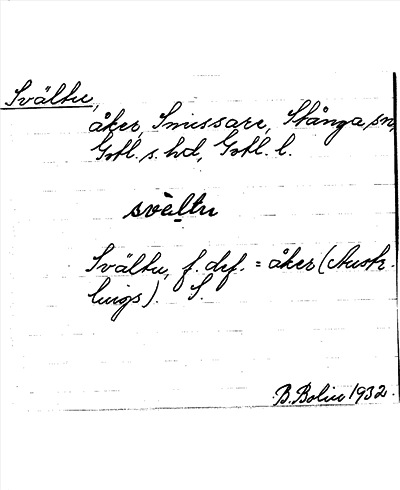 Svältu,
åker, Smissare, Stånga sn,
Gotl. s. hd, Gotl. l.
svàltu
Svältu, f. def. = åker (Aush.
luigs). S.
B. Bolin 1932.